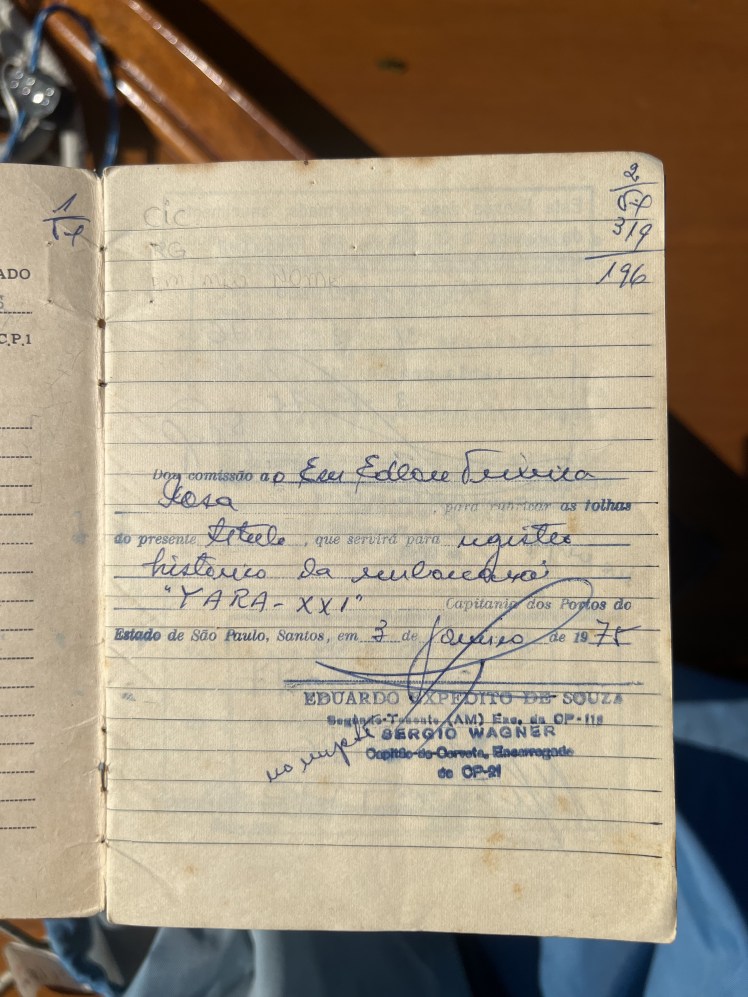 1
ADO
C.P.1
2
319
196
CIC
RG
Dou comissão ao Edlou Teixeira
Rosa , para rubricar as folhas
do presente título , que servirá para registro
historico da embarcação
"YARA-XXI" Capitania dos Portos do
Estado de São Paulo, Santos, em 3 de Janeiro de 1975
EDUARDO EXPEDITO DE SOUZA
Segundo-Tenente (AM) Enc. da CP-112
SERGIO WAGNER
Capitão-de-Corveta, Encarregado
do CP-21